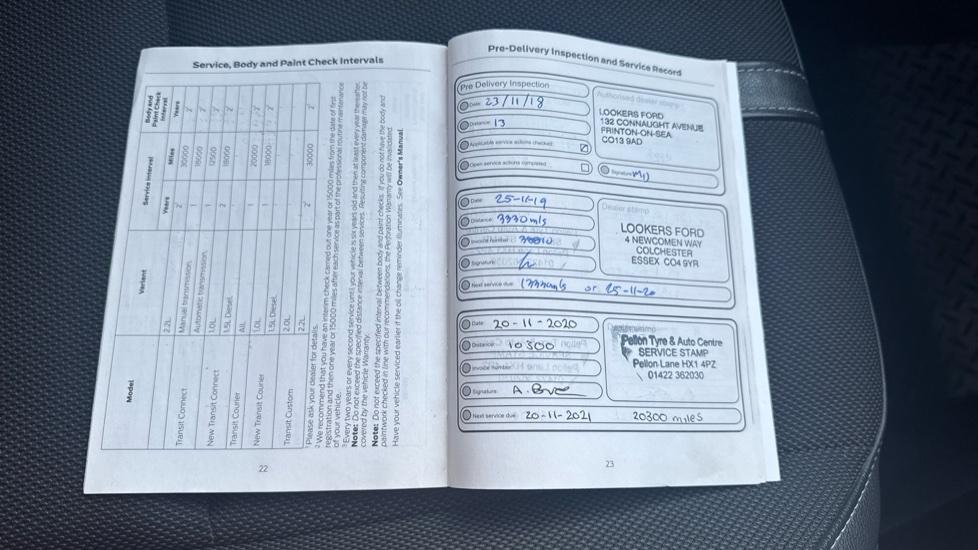 Service, Body and Paint Check Intervals
Model
Variant
Service Interval
Body and Paint Check Interval
Years
Miles
Years
2.2L
Transit Connect
Manual transmission
2
30000
Automatic transmission
1
New Transit Connect
1.0L
1
12500
1.5L Diesel
2
18000
Transit Courier
All
New Transit Courier
1.0L
1
20000
1.5L Diesel
Transit Custom
2.0L
2.2L
2
30000
Please ask your dealer for details.
We recommend that you have an interim check carried out one year or 15000 miles from the date of first
registration and then one year or 15000 miles after each service as part of the professional routine maintenance
of your vehicle.
Every two years or every second service until your vehicle is six years old and then at least every year thereafter.
Note: Do not exceed the specified distance interval between services. Resulting component damage may not be
covered by the vehicle Warranty.
Note: Do not exceed the specified interval between body and paint checks. If you do not have the body and
paintwork checked in line with our recommendations, the Perforation Warranty will be invalidated.
Have your vehicle serviced earlier if the oil change reminder illuminates. See Owner's Manual.
22
Pre-Delivery Inspection and Service Record
Pre Delivery Inspection
Date: 23/11/18
Distance: 13
Applicable service actions checked:
Open service actions completed
Authorised dealer stamp
LOOKERS FORD
132 CONNAUGHT AVENUE
FRINTON-ON-SEA
CO13 9AD
Signature
Date: 25-11-19
Distance: 3330mls
Invoice number:
Signature:
Next service due: or 25-11-20
Dealer stamp
LOOKERS FORD
4 NEWCOMEN WAY
COLCHESTER
ESSEX CO4 9YR
Date: 20-11-2020
Distance: 10300
Invoice number:
Signature:
Next service due: 20-11-2021 20300 miles
Dealer stamp
Pellon Tyre & Auto Centre
SERVICE STAMP
Pellon Lane HX1 4PZ
01422 362030
23